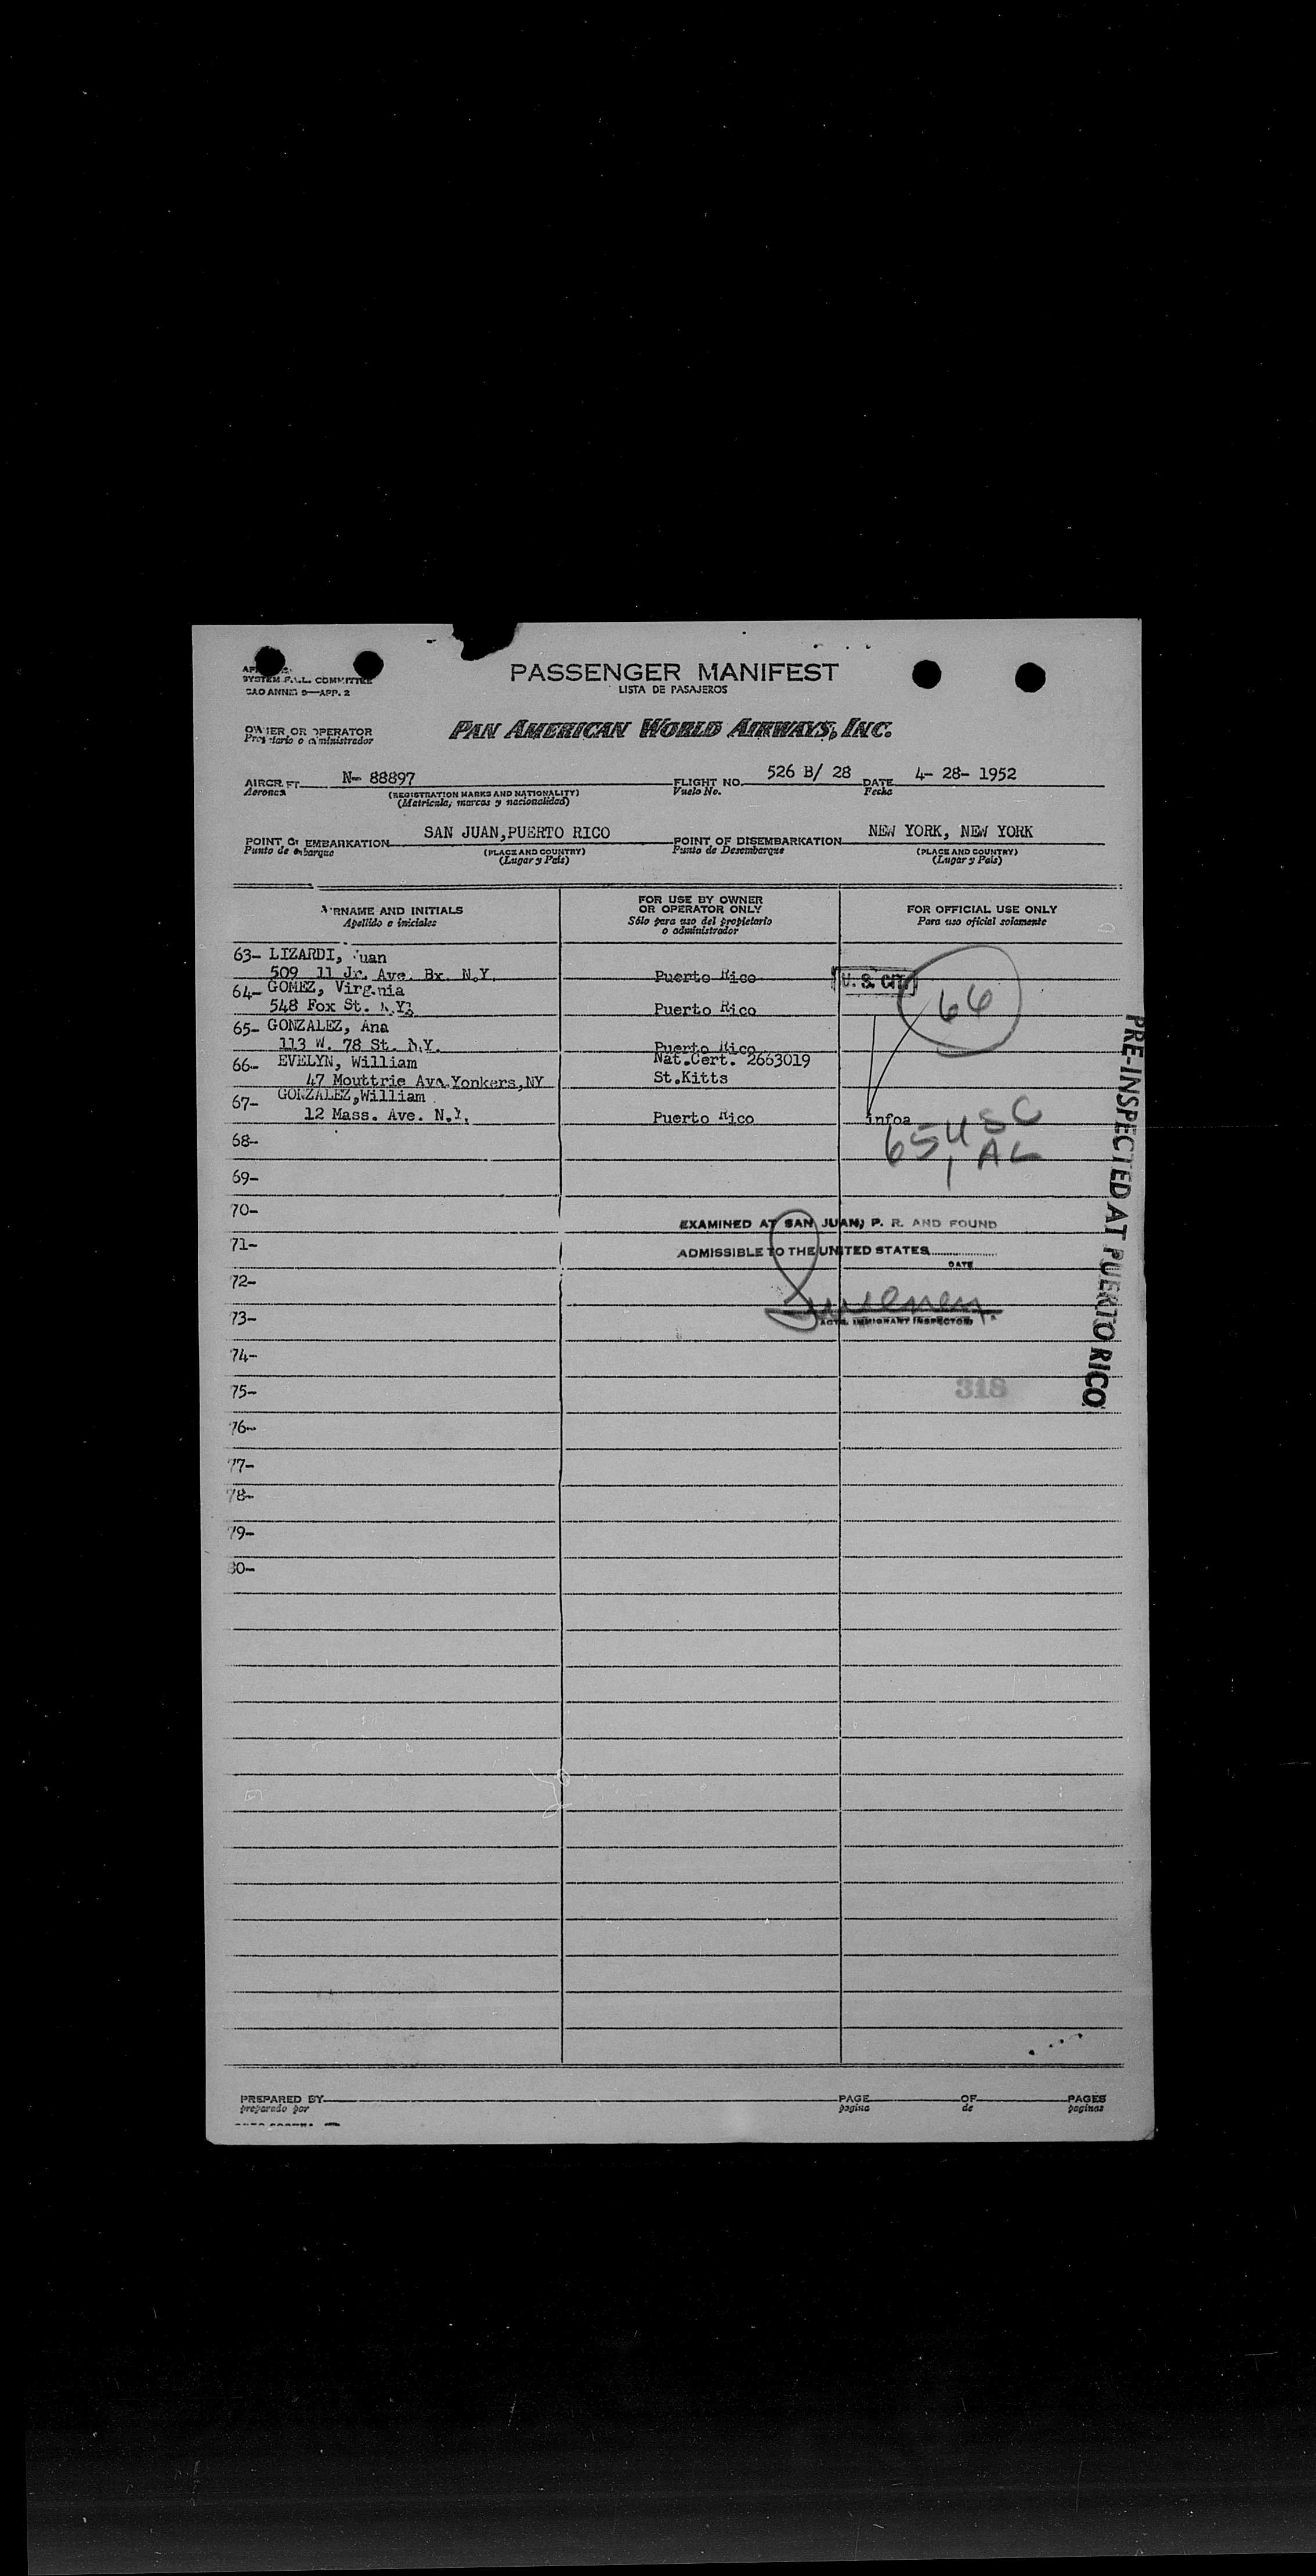 SYSTEM F.A.L. COMMITTEE
CAO ANNEX 9—APP. 2
PASSENGER MANIFEST
LISTA DE PASAJEROS
OWNER OR OPERATOR
Propietario o administrador
PAN AMERICAN WORLD AIRWAYS, INC.
AIRCRAFT N- 88897 FLIGHT NO. 526 B/ 28 DATE 4- 28- 1952
Aeronca (REGISTRATION MARKS AND NATIONALITY) Vuelo No. Fecha
(Matricula, marcas y nacionalidad)
POINT OF EMBARKATION SAN JUAN,PUERTO RICO POINT OF DISEMBARKATION NEW YORK, NEW YORK
Punto de embarque (PLACE AND COUNTRY) Punto de Desembarque (PLACE AND COUNTRY)
(Lugar y País) (Lugar y País)
SURNAME AND INITIALS
Apellido e iniciales
FOR USE BY OWNER
OR OPERATOR ONLY
Sólo para uso del propietario
o administrador
FOR OFFICIAL USE ONLY
Para uso oficial solamente
63- LIZARDI, Juan
509 11 Jr. Ave. Bx. N.Y. Puerto Rico U. S. CIT
64- GOMEZ, Virginia 66
548 Fox St. N.Y. Puerto Rico
65- GONZALEZ, Ana
113 W. 78 St. N.Y. Puerto Rico
66- EVELYN, William Nat.Cert. 2663019
47 Mouttrie Ave.Yonkers,NY St.Kitts
67- GONZALEZ,William
12 Mass. Ave. N.Y. Puerto Rico infoa
65 USC
1 AL
68-
69-
70-
EXAMINED AT SAN JUAN, P. R. AND FOUND
71-
ADMISSIBLE TO THE UNITED STATES
DATE
72-
73-
ACTG. IMMIGRANT INSPECTOR
74-
75- 318
76-
77-
78-
79-
80-
PRE-INSPECTED AT PUERTO RICO
PREPARED BY PAGE OF PAGES
preparado por pagina de paginas